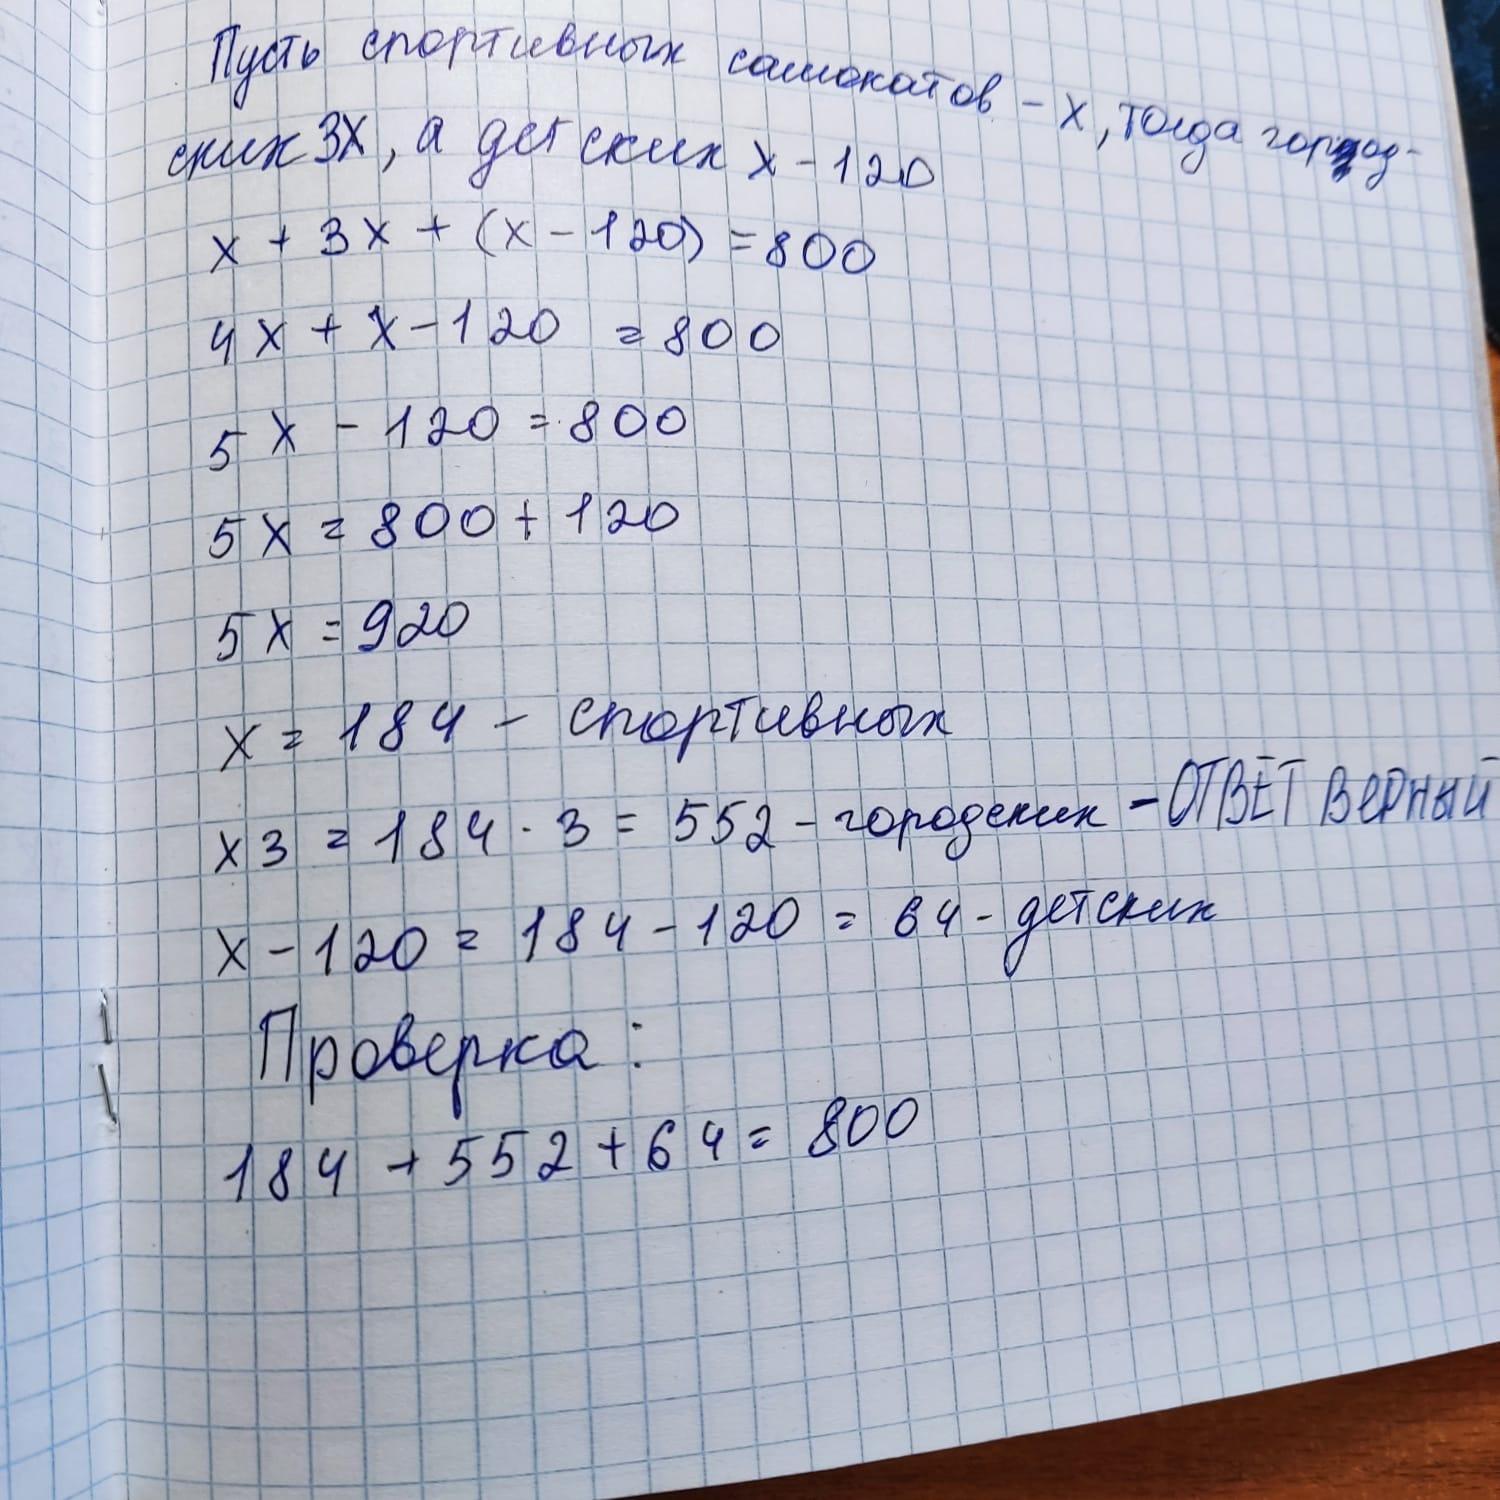 Пусть спортивных самокатов - х, тогда город-
ских 3х, а детских х - 120
х + 3х + (х - 120) = 800
4х + х - 120 = 800
5х - 120 = 800
5х = 800 + 120
5х = 920
х = 184 - спортивных
х3 = 184 · 3 = 552 - городских - ОТВЕТ ВЕРНЫЙ
х - 120 = 184 - 120 = 64 - детских
Проверка:
184 + 552 + 64 = 800